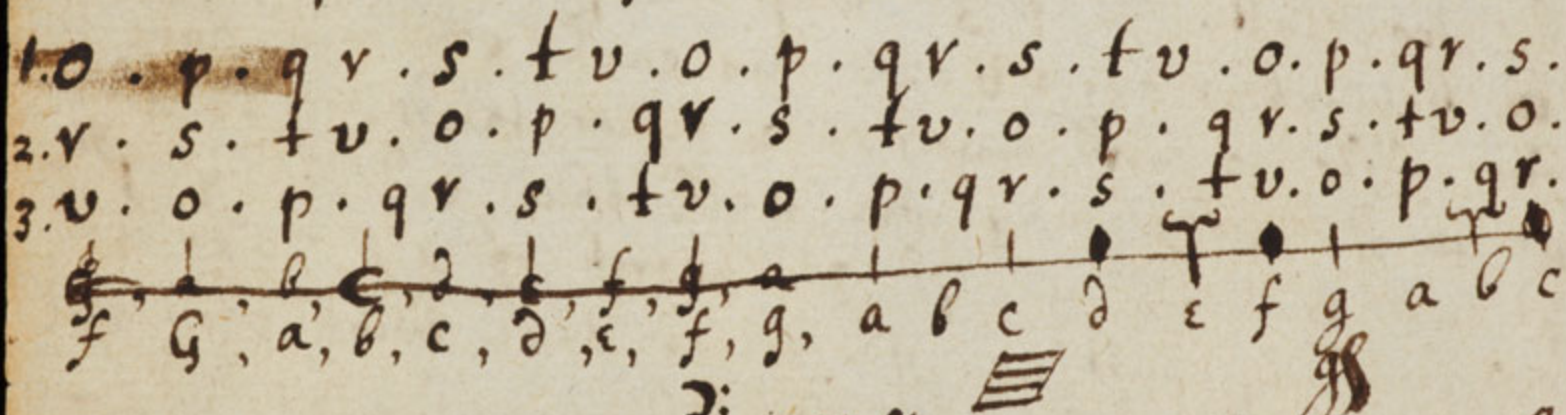 1. o . p . q r . s . t v . o . p . q r . s . t v . o . p . q r . s .
2. r . s . t v . o . p . q r . s . t v . o . p . q r . s . t v . o .
3. v . o . p . q r . s . t v . o . p . q r . s . t v . o . p . q r .
a b c d e f g a
f G, a, b, c, d, e, f, g, a b c d e f g a b c